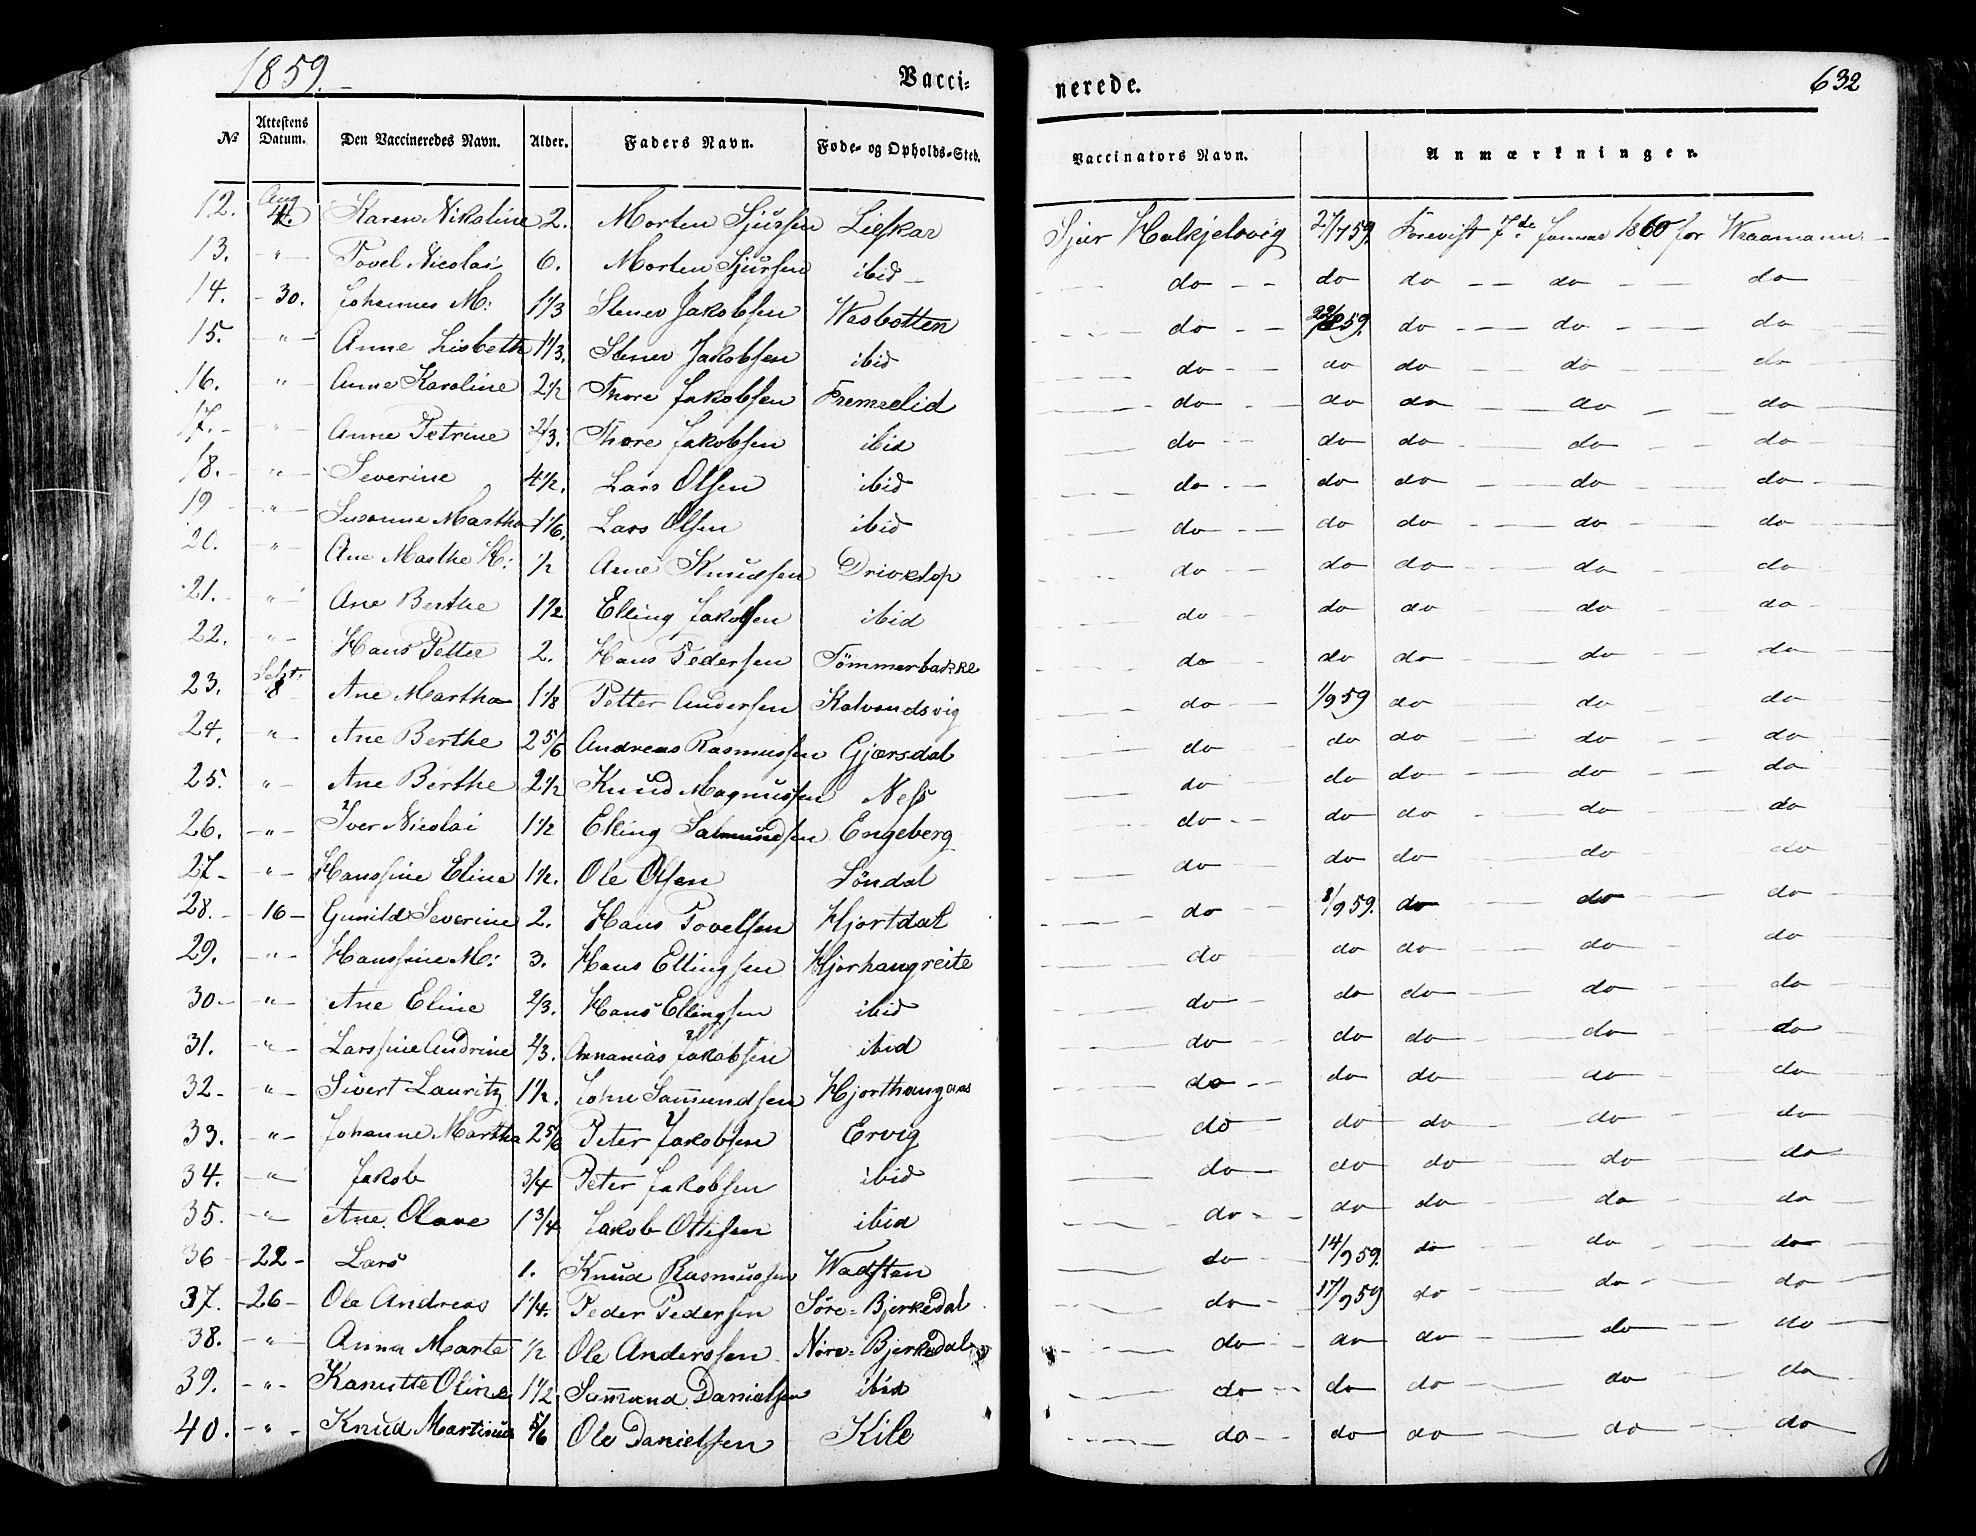 1859.
Vacci-
nerede.
632
No
Attestens Datum.
Den Vaccineredes Navn.
Alder.
Faders Navn.
Føde- og Opholds-Sted.
Vaccinators Navn.
Anmærkninger.
12. Aug 4. Karen Nikoline 2. Morten Sjursen Lieskar Sjur Halkjelsvig 27/7 59. Forevist 7de Januar 1860 for
13. " Povel Nicolai 6. Morten Sjursen ibid do do do do do
14. 30. Johannes M: 1 1/3 Stener Jakobsen Wasbotten do 22/8 59. do do do
15. " Anne Lisbeth 1 1/3. Stener Jakobsen ibid do do do do do
16. " Anne Karoline 2 1/2 Thore Jakobsen Fremselid do do do do do
17. " Anne Petrine 2/3. Thore Jakobsen ibid do do do do do
18. " Severine 4 1/2. Lars Olsen ibid do do do do do
19 " Susanne Martha 1 1/6. Lars Olsen ibid do do do do do
20. " Ane Marthe K: 1/2 Arne Knudsen Drivklop do do do do do
21. " Ane Berthe 1 1/2 Elling Jakobsen ibid do do do do do
22. " Hans Petter 2. Hans Pedersen Tømmerbakke do do do do do
23. Sept. 8 Ane Martha 1 1/8 Petter Andersen Kalvandsvig do 1/9 59 do do do
24. " Ane Berthe 2 5/6 Andreas Rasmussen Gjærsdal do do do do do
25. " Ane Berthe 2 1/2 Knud Magnussen Ness do do do do do
26. " Iver Nicolai 1 1/2 Elling Salmundsen Engeberg do do do do do
27 " Hanssine Eline 1 1/2. Ole Olsen Søndal do do do do do
28. 16 Gunild Severine 2. Hans Povelsen Hjortdal do 8/9 59. do do do
29. " Hanssine M: 3. Hans Ellingsen Hjorhangreite do do do do do
30 " Ane Eline 2/3. Hans Ellingsen ibid do do do do do
31. " Larssine Andrine 2/3. Annanias Jakobsen ibid do do do do do
32 " Sivert Lauritz 1 1/2. John Samundsen Hjorthaugaas do do do do do
33. " Johanne Martha 2 5/6 Peter Jakobsen Ervig do do do do do
34. " Jakob 3/4 Peter Jakobsen ibid do do do do do
35. " Ane Olave 1 3/4 Jakob Ottesen ibid do do do do do
36 22 Lars 1. Knud Rasmussen Wadsten do 14/9 59. do do do
37. 26 Ole Andreas 1 1/4. Peder Pedersen Søre-Bjerkedal do 17/9 59 do do do
38. " Anna Marte 1/2 Ole Anderssen Nøre-Bjerkedal do do do do do
39. " Kanutte Oline 1 1/2 Samund Danielsen ibid do do do do do
40. " Knud Martinus 5/6 Ole Danielsen Kile do do do do do